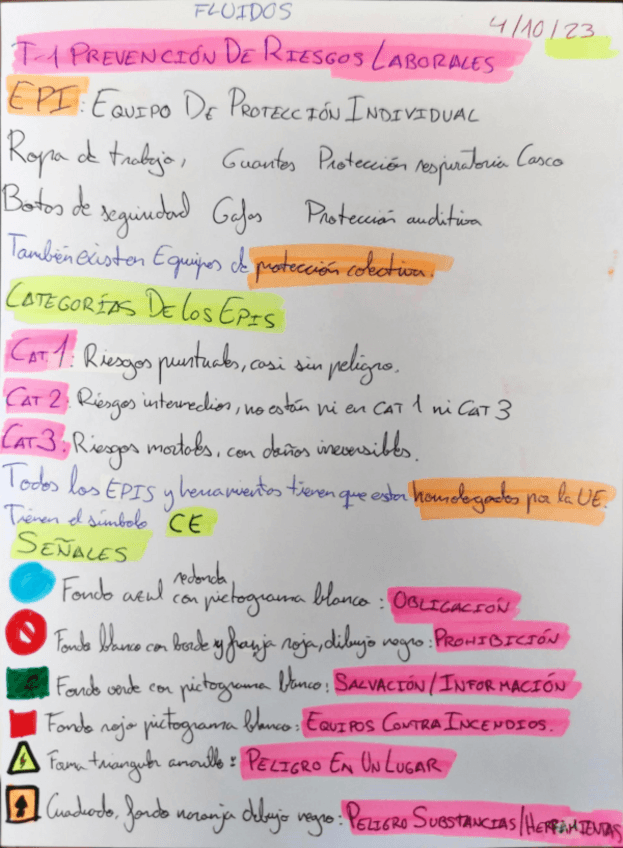 FLUIDOS
4/10/23
T-1 PREVENCIÓN DE RIESGOS LABORALES
EPI: EQUIPO DE PROTECCIÓN INDIVIDUAL
Ropa de trabajo, Guantes Protección respiratoria Casco
Botas de seguridad Gafas Protección auditiva
También existen Equipos de protección colectiva.
CATEGORÍAS DE LOS EPIS
CAT 1: Riesgos puntuales, casi sin peligro.
CAT 2: Riesgos intermedios, no están ni en CAT 1 ni CAT 3
CAT 3: Riesgos mortales, con daños irreversibles.
Todos los EPIS y herramientas tienen que estar homologados por la UE.
Tienen el símbolo CE
SEÑALES
redonda
Fondo azul con pictograma blanco: OBLIGACIÓN
Fondo blanco con borde y franja roja, dibujo negro: PROHIBICIÓN
Fondo verde con pictograma blanco: SALVACIÓN/INFORMACIÓN
Fondo rojo pictograma blanco: EQUIPOS CONTRA INCENDIOS.
Forma triangular amarillo: PELIGRO EN UN LUGAR
Cuadrado, fondo naranja dibujo negro: PELIGRO SUBSTANCIAS/HERRAMIENTAS